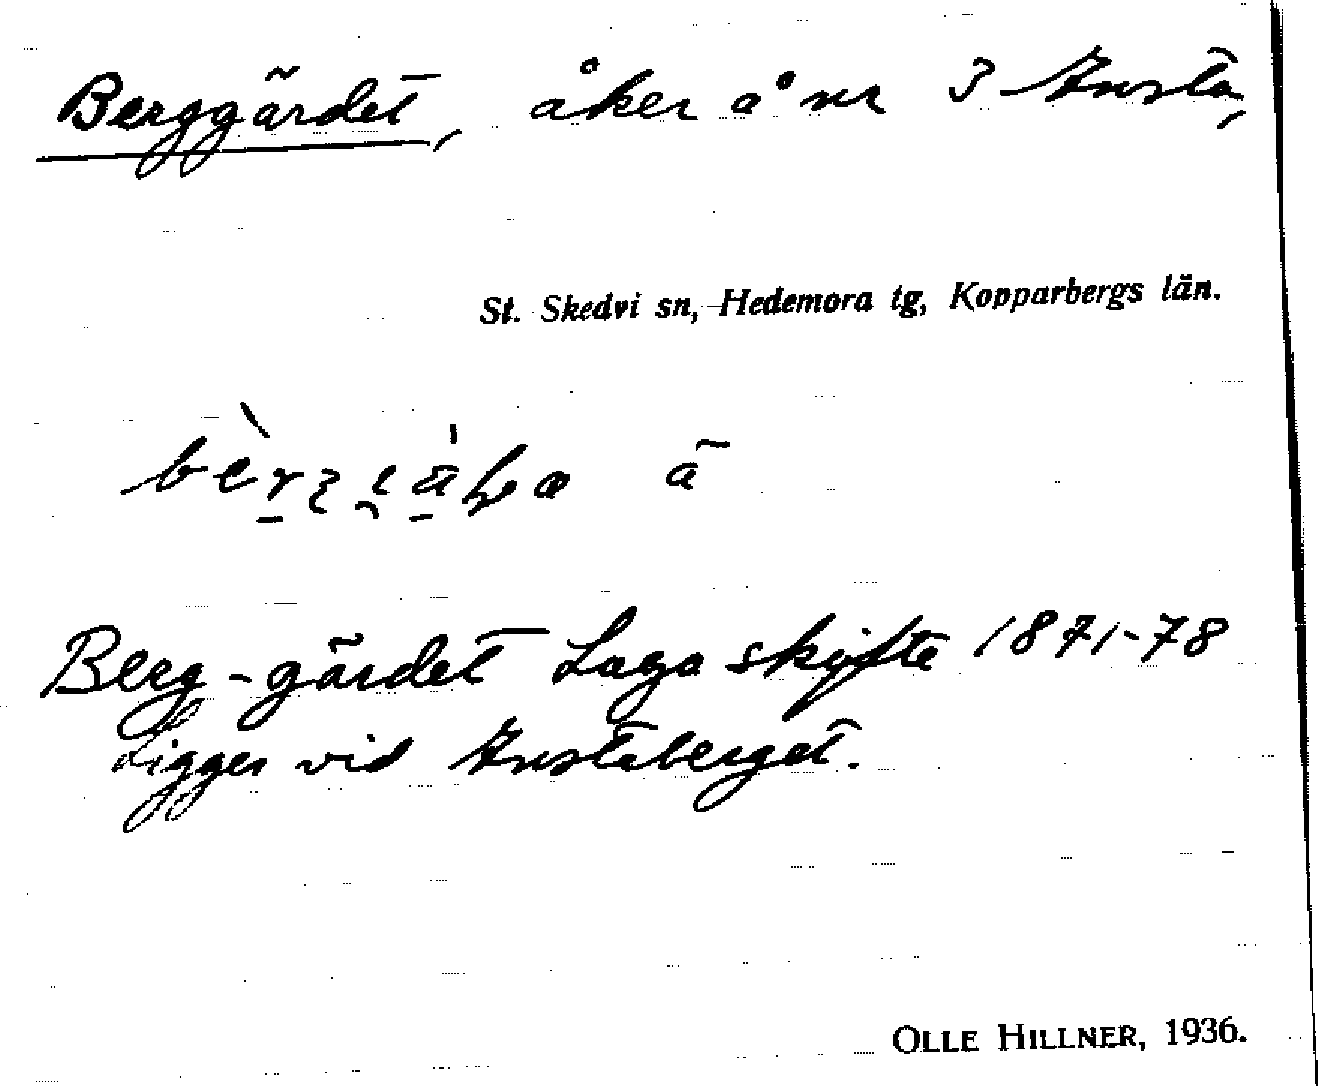 Berggärdet, åker å nr 3 Ansta,
St. Skedvi sn, Hedemora tg, Kopparbergs län.
å
Berg-gärdet Laga skifte 1871-78
Ligger vid Anstaberget.
OLLE HILLNER, 1936.